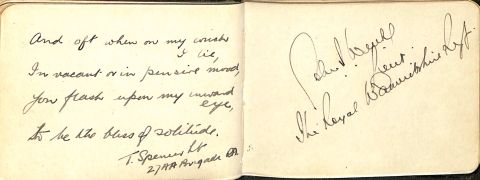 And oft when on my couch
I lie,
In vacant or in pensive mood,
You flash upon my inward
eye,
to be the bliss of solitude.
T. Spencer Lt
27 AA Brigade RA
John S.
Lieut.
The Royal Warwickshire Regt.